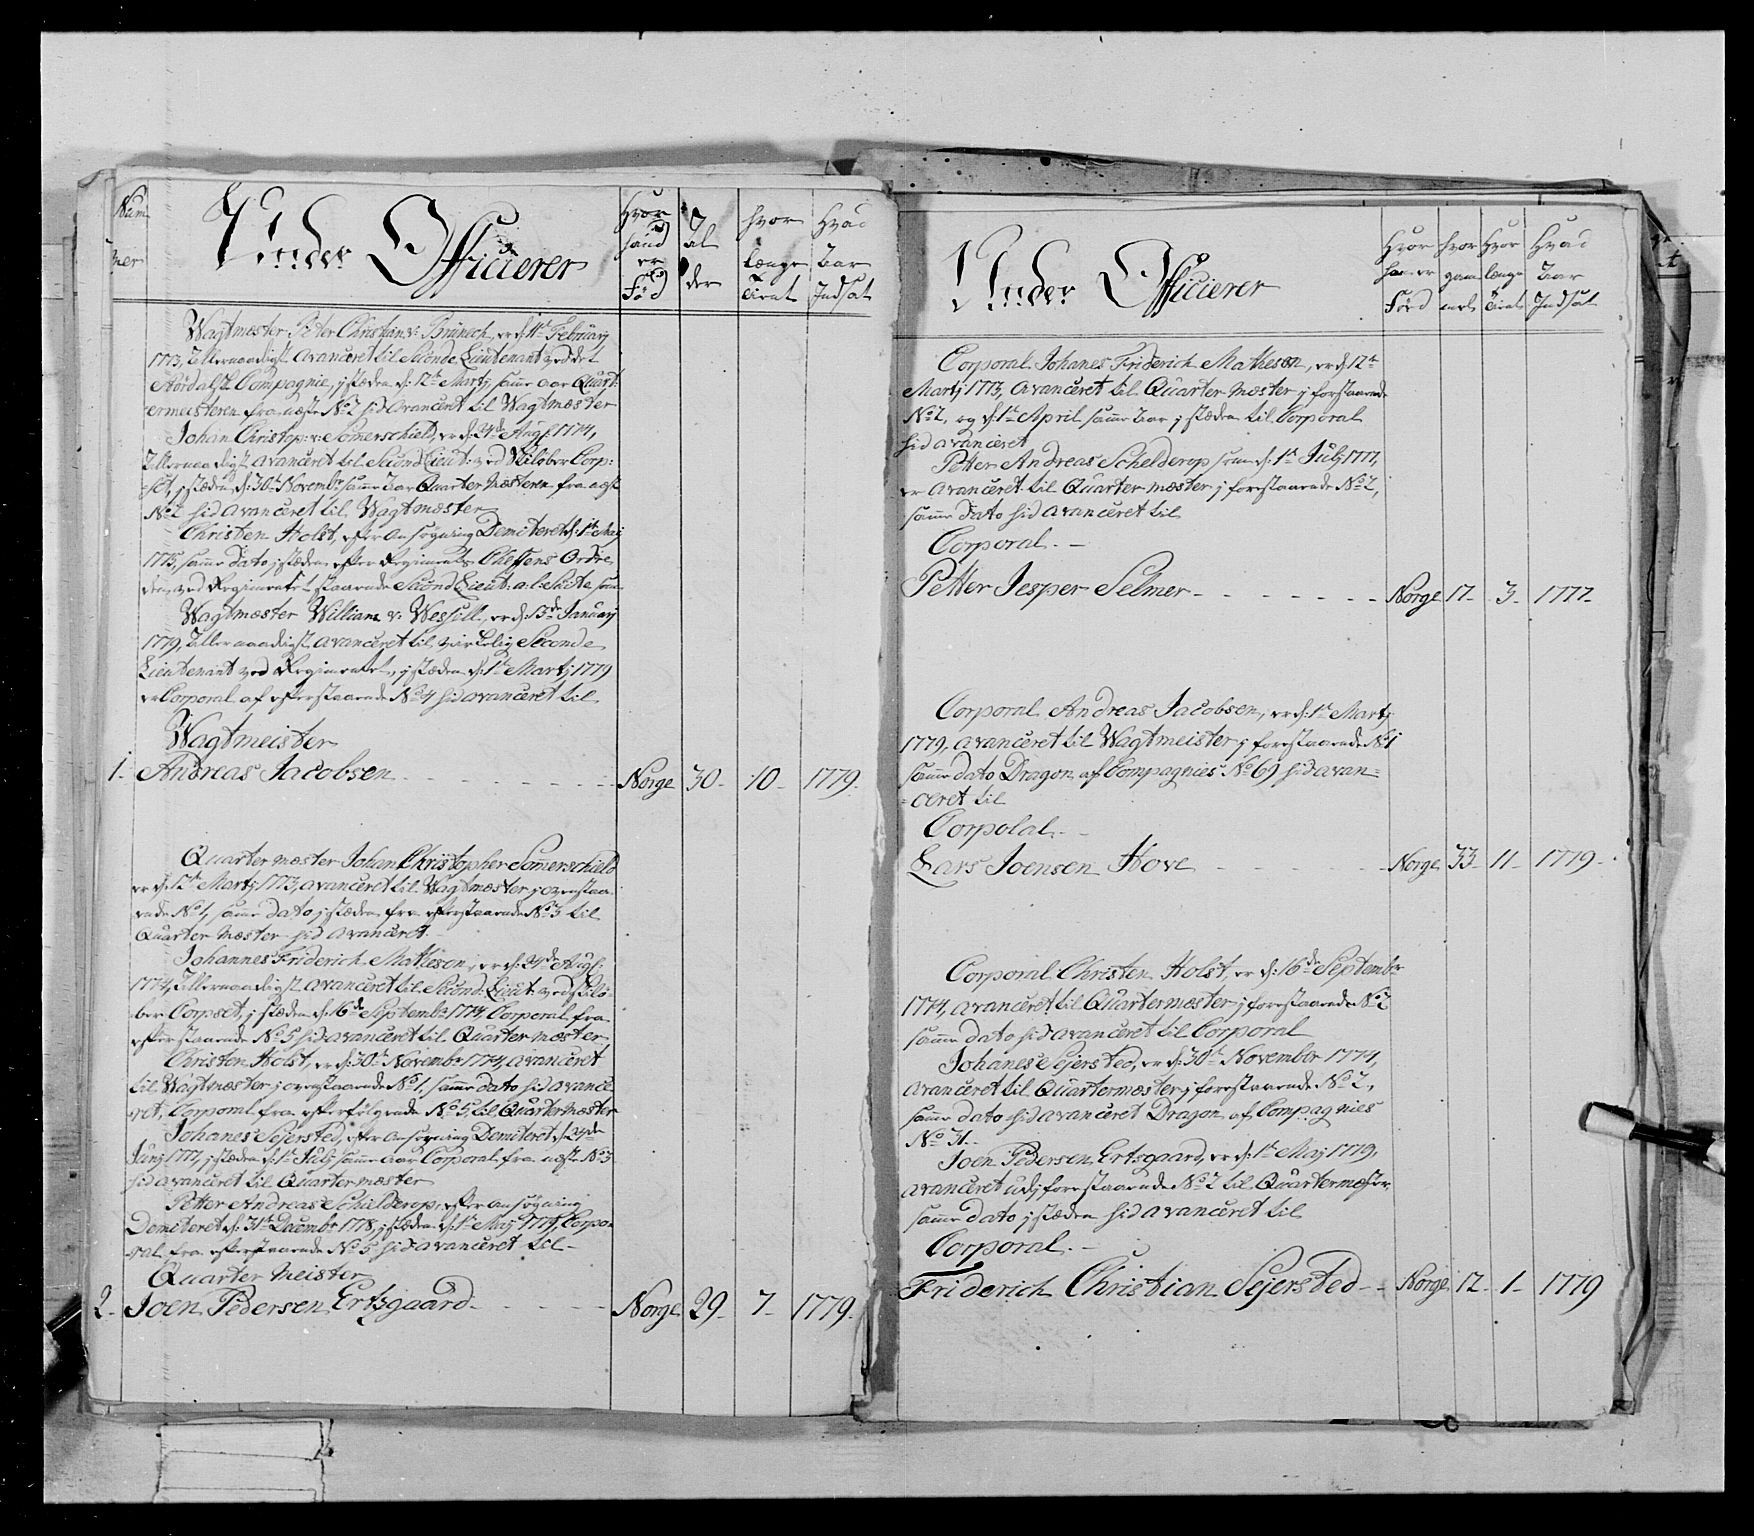 Num
mer
Under Officierer
Hvor
hand
er
Fød
Al
der
hvor
længe
tient
Hvad
Aar
Indsat
Wagtmester Peter Christian v: Brünech, er d: 11te Februarij
1773, Allernaadigst Avanceret til Seconde Lieutenant ved det
Aordalske Compagnie, j stæden d: 12te Martj samme aar Quart-
ermeisteren fra næste No 2 hid avanceret til Wagtmæster
Johan Christop: v: Somerschield, er d: 24de Augs: 1774,
Allernaadigst avanceret til Second Lieut: ved Skiløber Corp-
set, j stæden d: 30te Novembr samme Aar Quarter Mæsteren fra næst
No 2 hid avanceret til Wagtmæster
Christen Holst, efter Ansøgning Demiteret d: 1te Maj
1775, samme dato j stæden efter Regiments Cheffens Ordre
den ved Regimentet staaende Second Lieut: a la Suite
Wagtmæster William v: Wessell, er d: 13de Januarij
1779, Allernaadigst avanceret til virkelig Seconde
Lieutenant ved Regimentet, j stæden d: 1te Martj 1779
er Corporal af efterstaaende No 4 hid avanceret til
Wagtmeister
1. Andreas Jacobsen Norge 30- 10- 1779.
Quartermæster Johan Christopher Somerschield
er d: 12te Martj 1773, avanceret til Wagtmæster j ovenstaa-
ende No 1, samme dato j stæden fra efterstaaende No 3 til
Quarter Mæster hid avanceret.
Johannes Friderich Matheson, er d: 24de Augs:
1774, Allernaadigst avanceret til Second: Lieut: ved Skilø-
ber Corpset, j stæden d: 16de Septembr 1774 Corporal fra
efterstaaende No 5 hid avanceret til Quarter mæster
Christen Holst, er d: 30te Novembr 1774, avanceret
til Wagtmæster j ovenstaaende No 1, samme dato hid avance-
ret, Corporal fra efterfølgende No 5, til Quartermæster
Johanes Sejersted, efter Ansøgning Demiteret d: 24de
Junj 1777, j stæden d: 1te Julj samme aar Corporal fra næst No 3
hid avanceret til Quartermæster
Petter Andreas Schielderop, efter Ansøgning
Demiteret d: 31te Decembr 1778, j stæden d: 1te Maj 1779, Corpo-
ral fra efterstaaende No 5 hid avanceret til-
Quarter Meister
2- Joen Pedersen Ertsgaard Norge 29- 7- 1779.
Under Officierer
Hvor
han er
Fød
hvor
gam
mel
Hvor
længe
tient
Hvad
Aar
Indsat
Corporal Johanes Friderich Matheson, er d: 12te
Martj 1773, avanceret til Quarter Mæster j forstaaende
No 2, og d: 1te April samme Aar j stæden til Corporal
hid avanceret
Petter Andreas Schelderop som d: 1te Julj 1777,
er avanceret til Quartermæster j forestaaende No 2,
samme dato hid avanceret til
Corporal. -
Petter Jesper Selmer Norge 17- 3- 1777-
Corporal Andreas Jacobsen, er d: 1te Martj
1779, avanceret til Wagtmeister j forestaaende No 1
samme dato Dragon af Compagnies No 69 hid avan-
ceret til
Corpolal.-
Lars Joensen Hove Norge 33- 11- 1779-
Corporal Christen Holst, er d: 16de September
1774, avanceret til Quartermæster j forestaaende No 2
samme dato hid avanceret til Corporal
Johanes Sejersted, er d: 30te November 1774,
avanceret til Quartermæster j forestaaende No 2,
samme dato hid avanceret Dragon af Compagnies
No 31.
Joen Pedersen Ertsgaard, er d: 1te Maj 1779,
avanceret udj forestaaende No 2 til Quartermæster
samme dato j stæden hid avanceret til
Corporal. -
Friderich Christian Sejersted Norge 12- 1- 1779